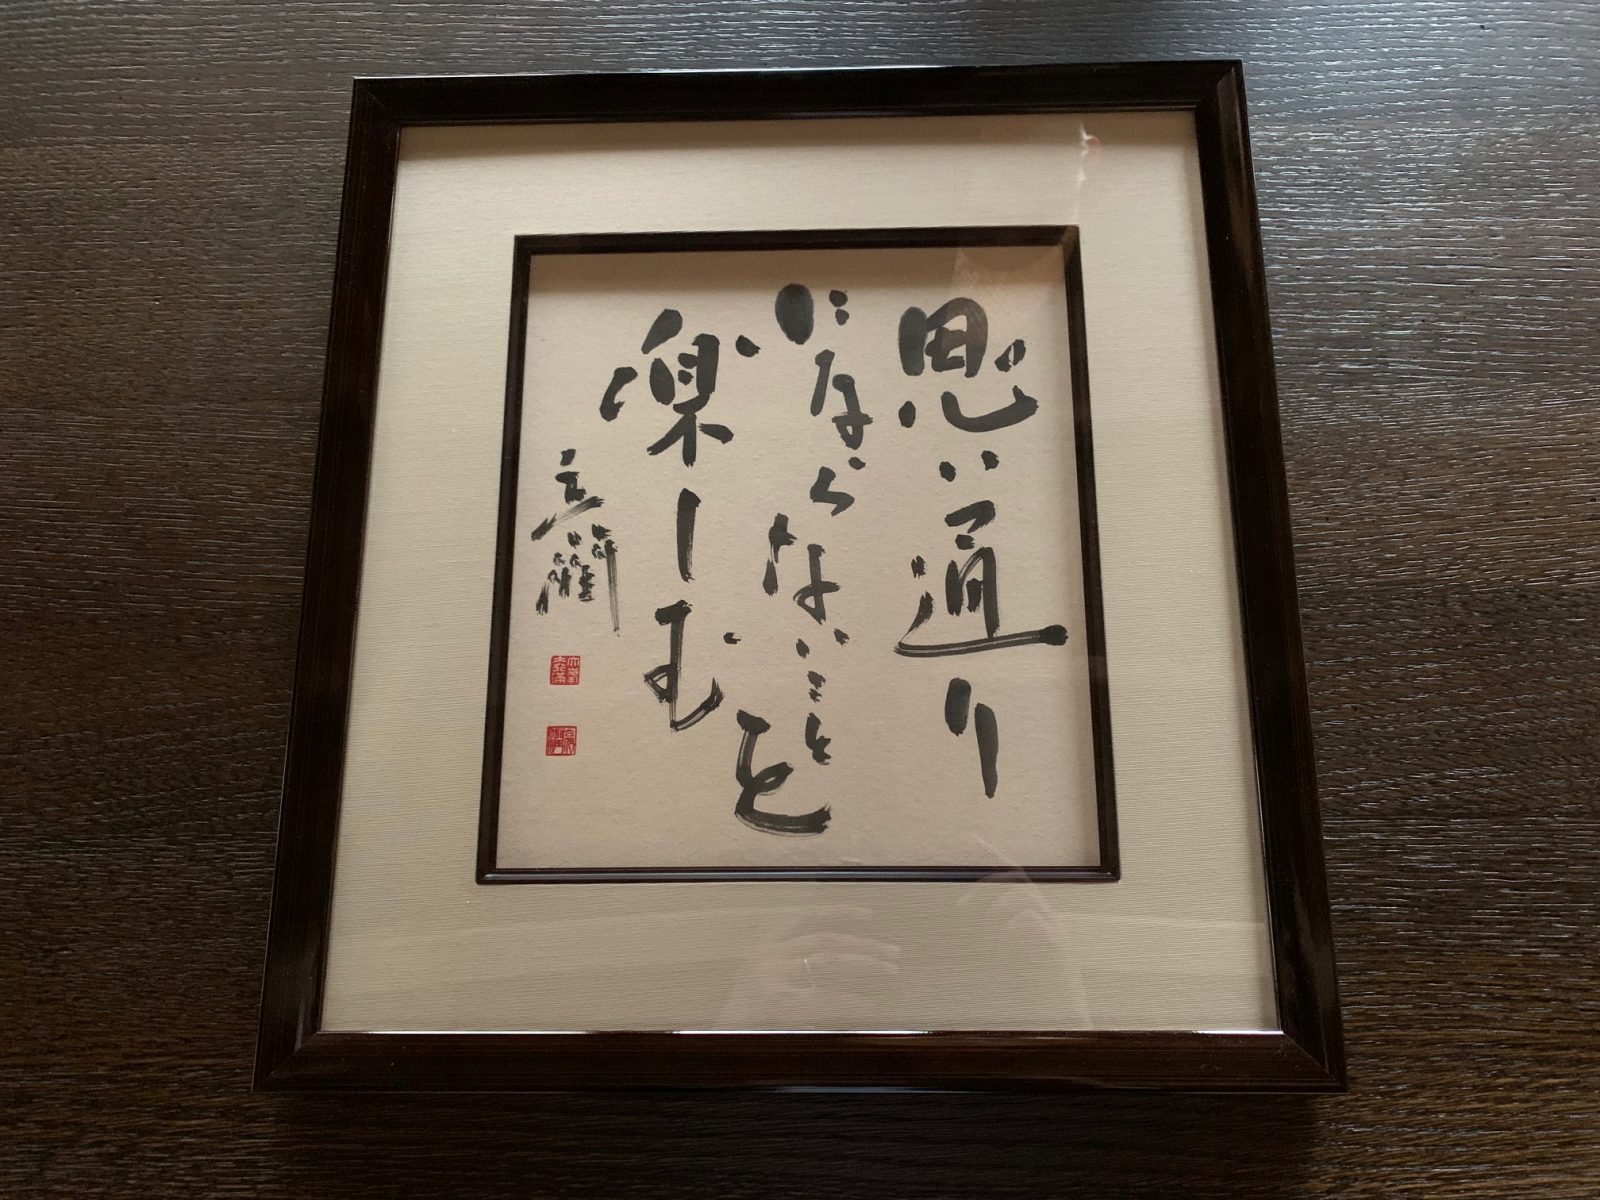 思い通り
にならないことを
楽しむ